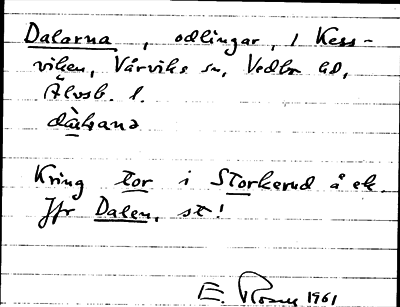 Dalarna, odlingar, i Kess-
viken, Vårviks sn, Vedbo hd,
Älvsb. l.
Kring tor i Storkerud å ek.
Jfr Dalen, st!
E. 1961